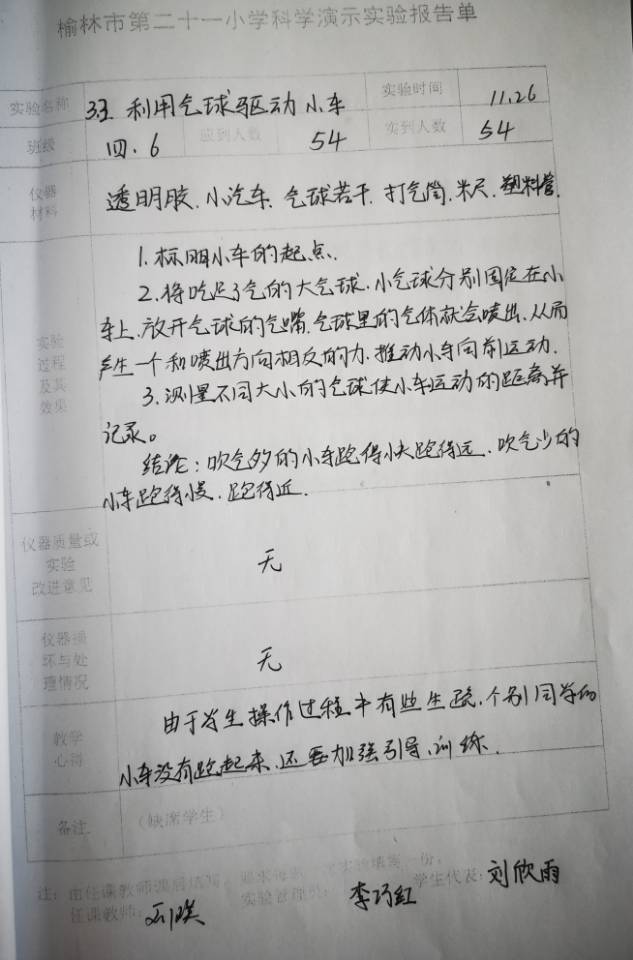 榆林市第二十一小学科学演示实验报告单
实验名称 3.3 利用气球驱动小车 实验时间 11.26
班级 四.6 应到人数 54 实到人数 54
仪器
材料
透明胶.小汽车.气球若干.打气筒.米尺.塑料管.
实验
过程
及其
效果
1.标明小车的起点.
2.将吃足了气的大气球.小气球分别固定在小
车上.放开气球的气嘴.气球里的气体就会喷出.从而
产生一个和喷出方向相反的力.推动小车向前运动.
3.测量不同大小的气球使小车运动的距离并
记录。
结论:吹气多的小车跑得快跑得远.吹气少的
小车跑得慢.跑得近.
仪器质量或
实验
改进意见
无
仪器损
坏与处
理情况
无
教学
心得
由于学生操作过程中有些生疏.个别同学的
小车没有跑起来.还要加强引导.训练.
备注 (缺席学生)
注:由任课教师课后填写,要求每班、实验填写一份;
任课教师: 实验管理员: 李巧红 学生代表:刘欣雨